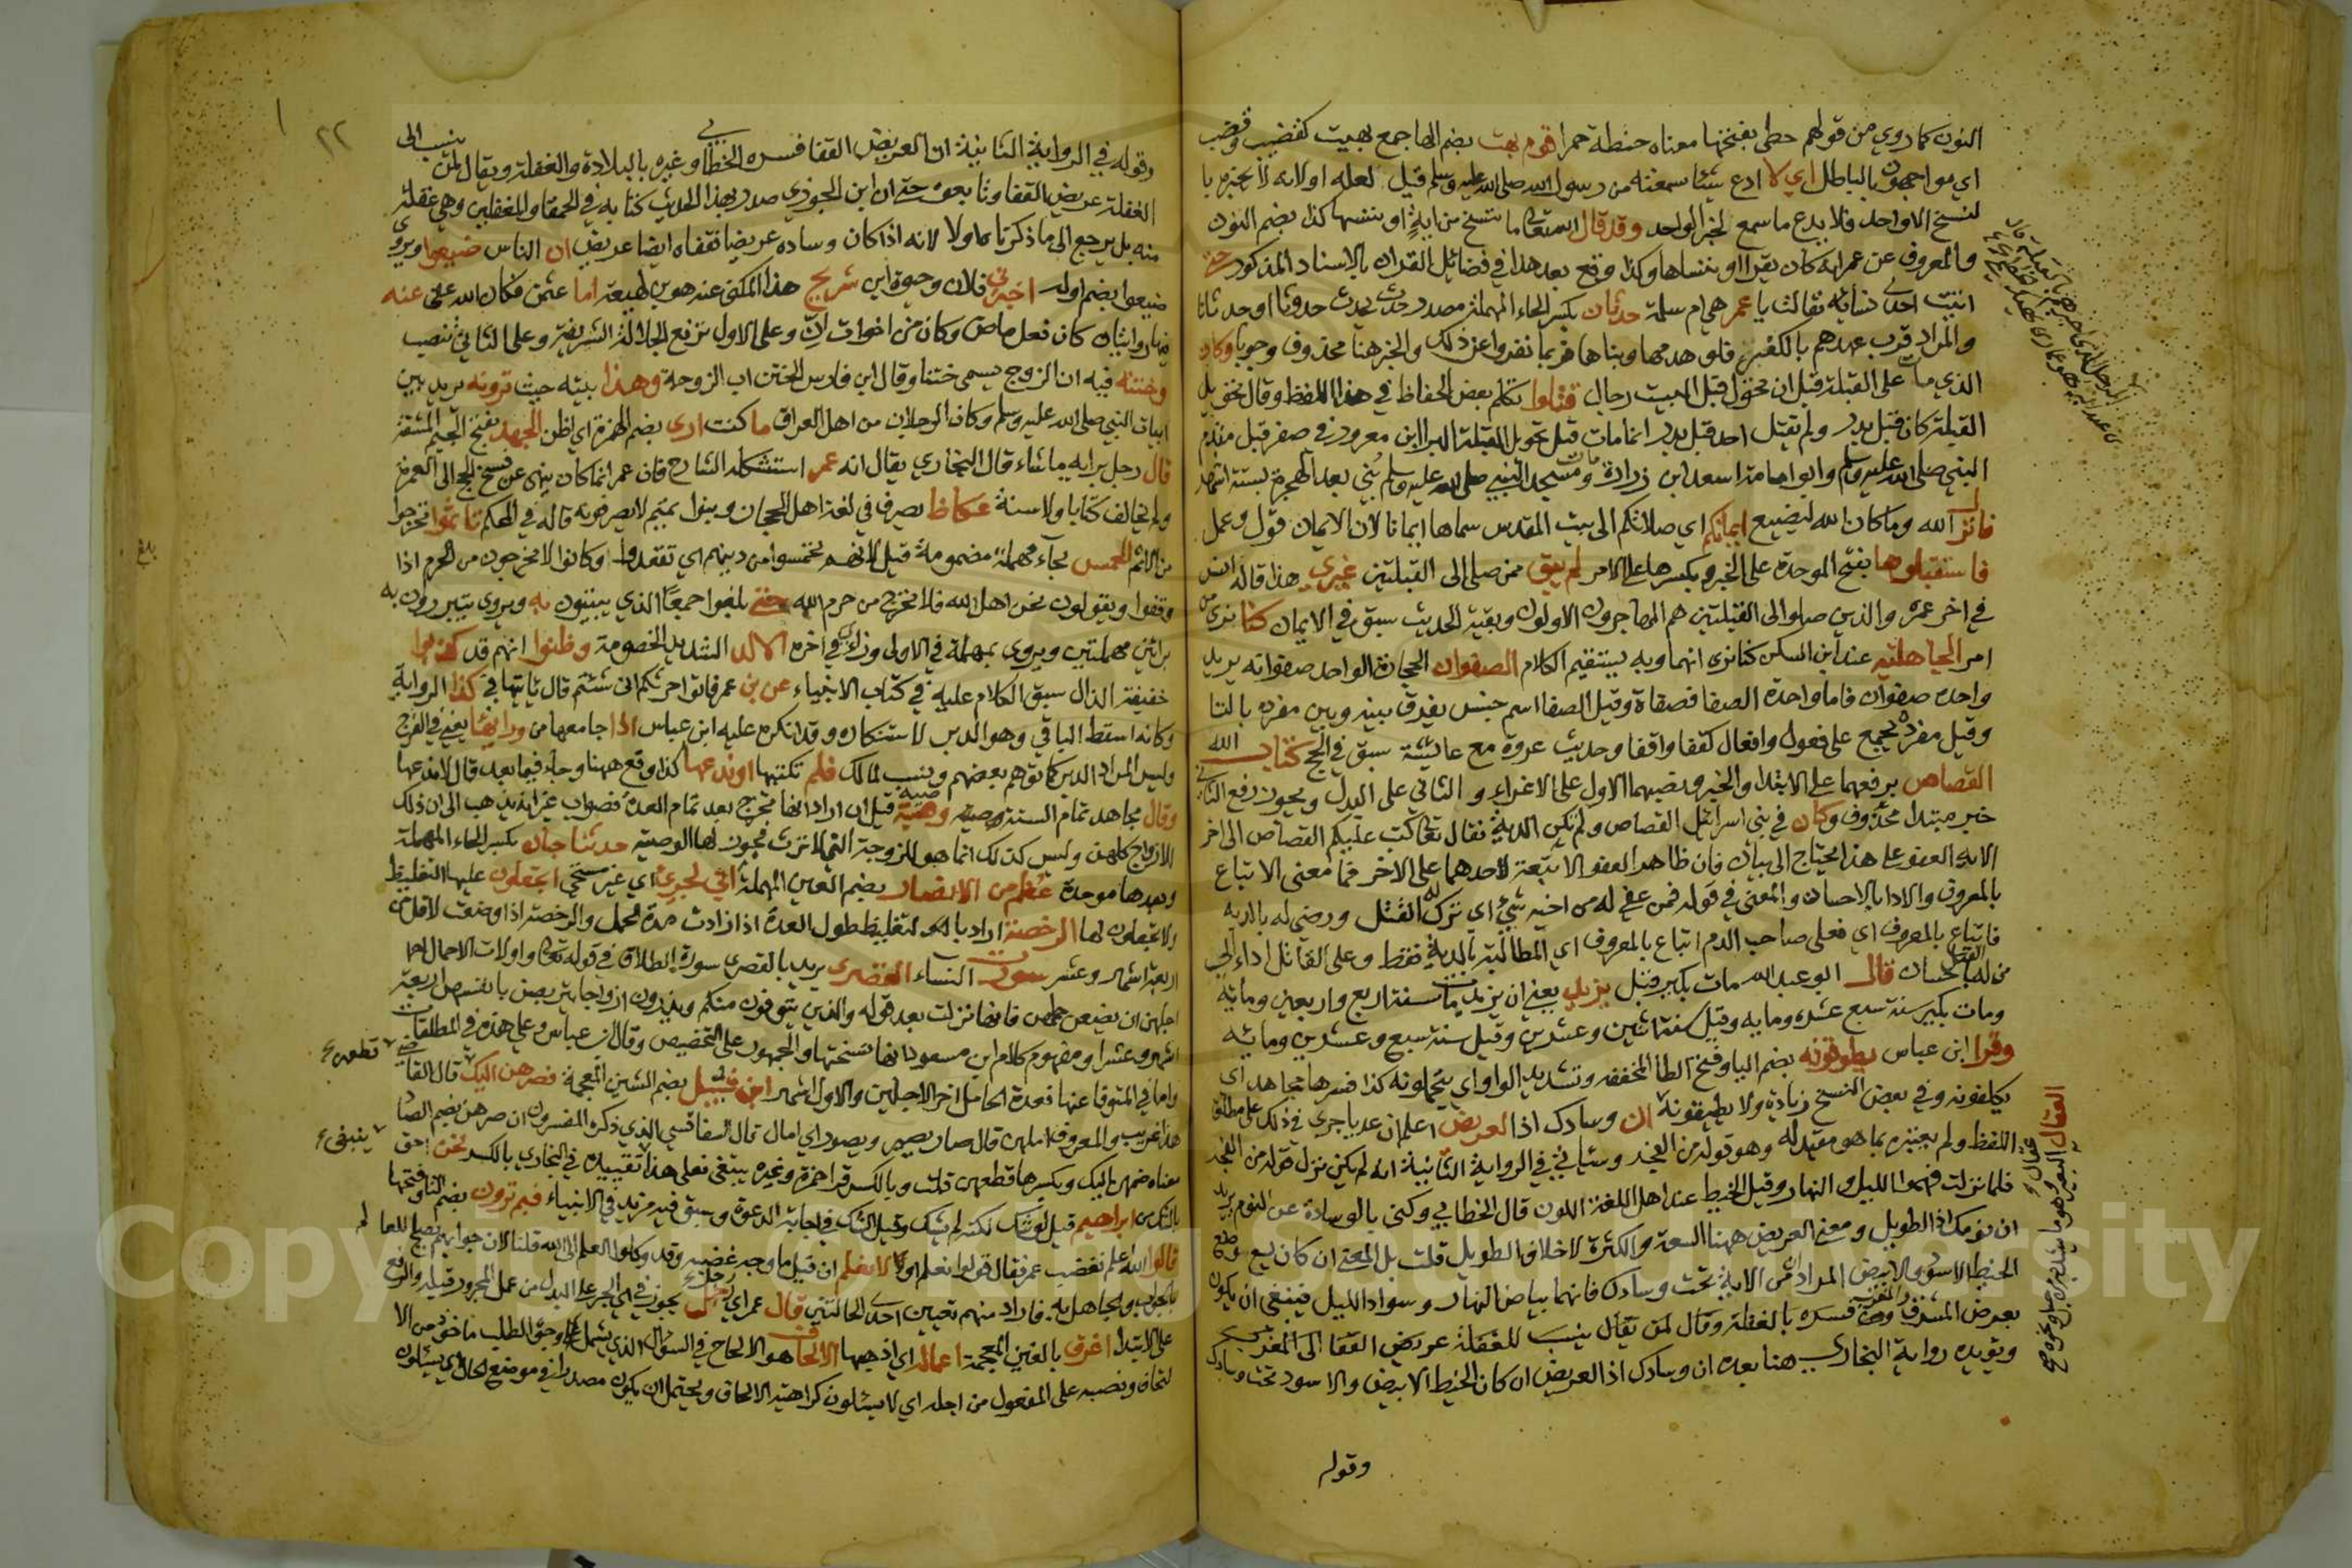 النون كما روي من قولهم حطى بفتحتها معناه حنطة حمرا قوم بهت بضم الها جمع بهيت كقضيب وقضب
اي مواجهون بالباطل اي لا ادع شيئا سمعته من رسول الله صلى الله عليه وسلم قيل لعله اولانه لا يخبره با
لنسخ الا واحد فلا يدع ما سمع لخبر الواحد وقد قال الله تعالى ما ننسخ من اية او ننسها كذا بضم النون
والمعروف عن عمر انه كان يقرا او ننساها وكذا وقع بعد هذا في فضائل القران بالاسناد المذكور حتى
اتيت احدى نسائه فقالت يا عمر هي ام سلمة حدثان بكسر الحاء المهملة مصدر حدث يحدث حدوثا وحدثانا
والمراد قرب عهدهم بالكفر فلو هدمها وبناها فربما نفروا عن ذلك والخبر هنا محذوف وجوبا وكان
الذي مات على القبلة قبل ان تحول قبل البيت رجال قتلوا تكلم بعض الحفاظ في هذا اللفظ وقال تحويل
القبلة كان قبل بدر ولم يقتل احد قبل بدر انما مات قبل تحويل القبلة البرا ابن معرور في صفر قبل مقدم
النبي صلى الله عليه وسلم وابو امامة اسعد ابن زرارة ومسجد النبي صلى الله عليه وسلم بني بعد الهجرة بستة اشهر
فانزل الله وما كان الله ليضيع ايمانكم اي صلاتكم الى بيت المقدس سماها ايمانا لان الايمان قول وعمل
فاستقبلوها بفتح الموحدة على الخبر وبكسرها على الامر لم يبق ممن صلى الى القبلتين غيري هذا قاله انس
في اخر عمره والذين صلوا الى القبلتين هم المهاجرون الاولون وبقية الحديث سبق في الايمان كنا نرى من
امر الجاهلية عند ابن السكن كنا نرى انهما وبه يستقيم الكلام الصفوان الحجارة الواحد صفوانه يريد
واحده صفوان فاما واحدة الصفا فصفاة وقيل الصفا اسم جنس يفرق بينه وبين مفرده بالتا
وقيل مفرد يجمع على فعول وافعال كقفا واقفا وحديث عروة مع عائشة سبق في الحج كتاب الله
القصاص برفعهما على الابتدا والخبر وبنصبهما الاول على الاغراء والثاني على البدل ويجوز رفع الثاني
خبر مبتدا محذوف وكان في بني اسرائيل القصاص ولم تكن الدية فقال تعالى كتب عليكم القصاص الى اخر
الاية العفو على هذا يحتاج الى بيان فان ظاهر العفو الا تبعة لاحدهما على الاخر فما معنى الاتباع
بالمعروف والادا بالاحسان والمعنى في قوله فمن عفي له من اخيه شيء اي ترك له القتل ورضي له بالدية
فاتباع بالمعروف اي فعلى صاحب الدم اتباع بالمعروف اي المطالبة بالدية فقط وعلى القاتل اداء الي
من له القتل باحسان قال ابو عبد الله مات بكير قبل يزيد يعني ان يزيد مات سنة اربع واربعين ومائة
ومات بكير سنة سبع عشره ومايه وقيل سنة اثنين وعشرين وقيل سنة سبع وعشرين ومائه
وقرا ابن عباس يطوقونه بضم اليا وفتح الطا المخففه وتشديد الواو اي يتحملونه كذا فسرها مجاهد اي
يكلفونه وفي بعض النسخ زيادة ولا يطيقونه ان وسادك اذا لعريض اعلم ان عديا جرى في ذلك على مطلق
اللفظ ولم يعتبره بما هو مقيد له وهو قوله من الفجر وسياتي في الرواية الثانية انه لم يكن نزل قوله من الفجر
فلما نزلت فهموا الليل والنهار وقيل الخيط عند اهل اللغة اللون قال الخطابي وكنى بالوسادة عن النوم يريد
ان نومك اذا الطويل ومعنى العريض ههنا السعة والكثرة لا خلاف الطويل قلت بل المعنى ان كان يسع وضع
الخيط الاسود والابيض المراد من الاية تحت وسادك فانهما بياض النهار وسواد الليل فينبغي ان يكون
بعرض المشرق والمغرب فسره بالغفلة وقال لمن يقال ينسب للغفلة عريض القفا الى المغرب
ويؤيده رواية البخاري هنا بعده ان وسادك اذا لعريض ان كان الخيط الابيض والاسود تحت وسادك
وقوله
٢٢
وقوله في الرواية الثانية ان العريض القفا فسره الخطابي وغيره بالبلادة والغفلة ويقال لمن ينسب الى
الغفلة عريض القفا وتابعوه حتى ان ابن الجوزي صدر بهذا الحديث كتابه في الحمقا والمغفلين وهي غفلة
منه بل يرجع الى ما ذكرناه اولا لانه اذا كان وساده عريضا فقفاه ايضا عريض ان الناس ضيعوا ويروى
ضيعوا بضم اوله اخبرني فلان وحيوة ابن شريح هذا المكنى عنه هو بن لهيعة اما عثمن فكان الله عفى عنه
كان فعل ماض وكان من اخوات ان وعلى الاول ترفع الجلالة الشريفة وعلى الثاني تنصب
وختنه فيه ان الزوج يسمى ختنا وقال ابن فارس الختن اب الزوجة وهذا بيته حيث ترونه يريد بين
ابيات النبي صلى الله عليه وسلم وكان الرجلان من اهل العراق ما كنت ارى بضم الهمزة اي اظن الجهد بفتح الجيم المشقة
قال رجل برايه ما شاء قال البخاري يقال انه عمر استشكله الشارح فان عمر انما كان ينهى عن فسخ الحج الى العمرة
ولم يخالف كتابا ولا سنة عكاظ يصرف في لغة اهل الحجاز وبنوا تميم لا يصرفونه قاله في المحكم تاثموا تحرجوا
من الاثم الحمس بحاء مهملة مضمومة قيل لانهم تحمسوا في دينهم اي تشددوا وكانوا لا يخرجون من الحرم اذا
وقفوا ويقولون نحن اهل الله فلا نخرج من حرم الله حتى يبلغوا جمعا الذي يبيتون به ويروى يتبررون به
برائين مهملتين ويروى بمهملة في الاولى وزاي في اخره الالد الشديد الخصومة وظنوا انهم قد كذبوا
خفيفة الذال سبق الكلام عليه في كتاب الانبياء عن بن عمر فاتوا حرثكم انى شئتم قال ياتيها في كذا الرواية
وكانه اسقط الباقي وهو الدبر لاستنكاره وقد انكره عليه ابن عباس اذا جامعها من ورائها يعني في الفرج
وليس المراد الدبر كما توهم بعضهم ونسب لمالك فلم تكتبها او تدعها كذا وقع ههنا وجاء فيما بعد قال لا ندعها
وقال مجاهد تمام السنة وصية وهبة قيل ان اراد انها تخرج بعد تمام العدة فصواب غير انه يذهب الى ان ذلك
الازواج كلهن وليس كذلك انما هو للزوجة التي لا ترث فيجوز لها الوصية حدثنا حبان بكسر الحاء المهملة
وبعدها موحدة عظم من الانصار بضم العين المهملة اني لجرئ اي غير مستحي اتجعلون عليها التغليظ
ولا تجعلون لها الرخصة اراد بالتغليظ طول العدة اذا زادت مدة الحمل والرخصة اذا وضعت لاقل من
اربعة اشهر وعشر سورة النساء القصرى يريد بالقصرى سورة الطلاق في قوله تعالى واولات الاحمال
اجلهن ان يضعن حملهن فانها نزلت بعد قوله والذين يتوفون منكم ويذرون ازواجا يتربصن بانفسهن اربعة
اشهر وعشرا ومفهوم كلام ابن مسعود انها نسختها والجمهور على التخصيص وقال ابن عباس وعلي هذه في المطلقات
واما في المتوفا عنها فعدة الحامل اخر الاجلين والاول اشهر ابن شبيل بضم الشين المعجمة فصرهن اليك قال القاضي
هذا غريب والمعروف املهن قال صار يصير ويصور اي امال قال السفاقسي الذي ذكره المفسرون ان صرهن بضم الصاد
معناه ضمهن اليك وبكسرها قطعهن قلت وبالكسر قرا حمزة وغيره ينبغي فعلى هذا تقييده في البخاري بالكسر نحن احق
بالشك من ابراهيم قيل لو شك لكنه لم يشك وقيل الشك في اجابة الدعوة وسبق فيه مزيد في الانبياء فيم ترون بضم التا وفتحها
قالوا الله اعلم فغضب عمر فقال قولوا نعلم او لا نعلم ان قيل ما وجه غضبه وقد وكلوا العلم الى الله قلنا لان جوابهم يصلح للعالم
بالجواب والجاهل به فاراد منهم تعيين احدى الحالتين قال عمر اي رجل يجوز في اي الجر على البدل من عمل المجرور قبله والرفع
على الابتدا اغرق بالغين المعجمة اعماله اي اذهبها الالحاف هو الالحاح في السؤال
لحاف ونصبه على المفعول من اجله اي لا يسئلون كراهية الالحاف ويحتمل ان يكون مصدرا في موضع الحال اي يسئلون
قطعهن
ينبغى
بلغ